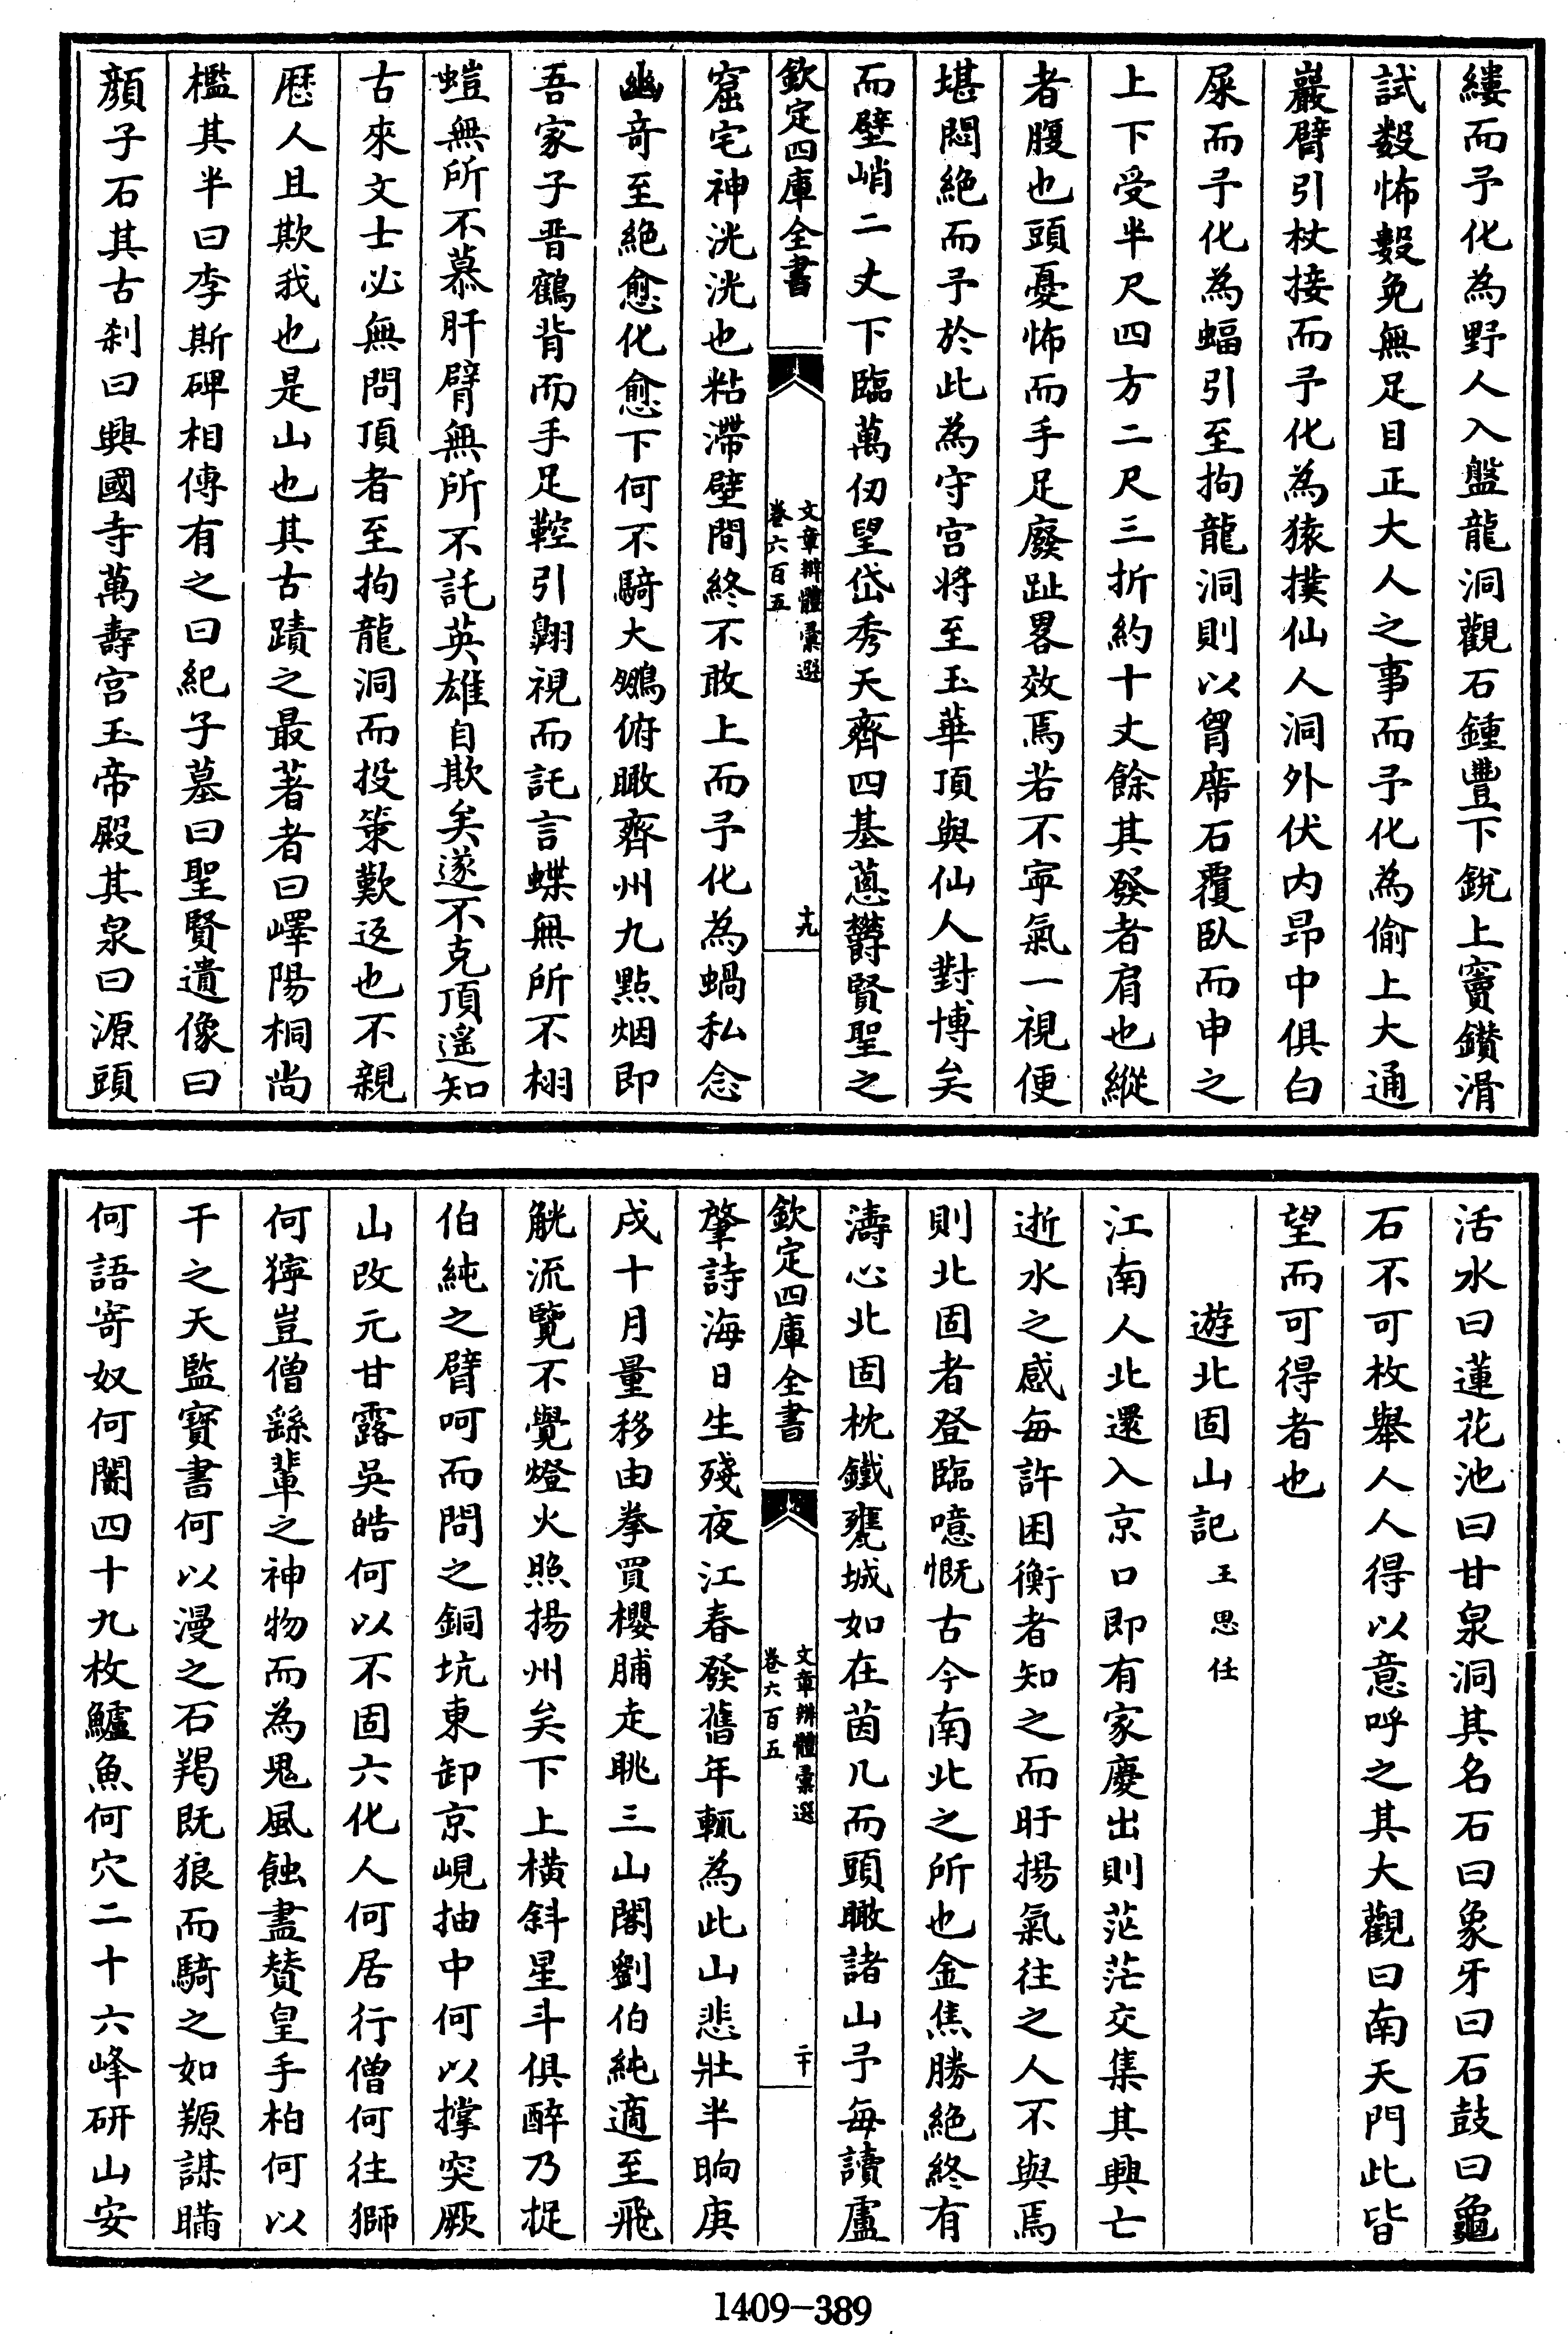 縷而予化為野人入盤龍洞觀石鍾豐下銳上竇鑽滑
試數怖數免無足目正大人之事而予化為偷上大通
巖臂引杖接而予化為猿撲仙人洞外伏内昂中俱白
屎而予化為蝠引至拘龍洞則以胷席石覆臥而申之
上下受半尺四方二尺三折約十丈餘其發者肩也縱
者腹也頭憂怖而手足廢趾畧效焉若不寧氣一視便
堪悶絶而予於此為守宫將至玉華頂與仙人對博矣
而壁峭二丈下臨萬仞望岱秀天齊四基蔥欝賢聖之
欽定四庫全書
文章辨體彙選
卷六百五
十九
窟宅神洸洸也粘滯壁間終不敢上而予化為蝸私念
幽竒至絶愈化愈下何不騎大鵬俯瞰齊州九點烟即
吾家子晋鶴背而手足鞚引翺視而託言蝶無所不栩
螘無所不慕肝臂無所不託英雄自欺矣遂不克頂遥知
古來文士必無問頂者至拘龍洞而投䇿歎返也不親
厯人且欺我也是山也其古蹟之最著者曰嶧陽桐尚
檻其半曰李斯碑相傳有之曰紀子墓曰聖賢遺像曰
顔子石其古刹曰興國寺萬壽宫玉帝殿其泉曰源頭
活水曰蓮花池曰甘泉洞其名石曰象牙曰石鼓曰龜
石不可枚舉人人得以意呼之其大觀曰南天門此皆
望而可得者也
遊北固山記 王思任
江南人北還入京口即有家慶出則茫茫交集其興亡
逝水之感每許困衡者知之而盱揚氣往之人不與焉
則北固者登臨噫慨古今南北之所也金焦勝絶終有
濤心北固枕鐵甕城如在茵几而頭瞰諸山予每讀盧
欽定四庫全書
文章辨體彙選
卷六百五
二十
肇詩海日生殘夜江春發舊年輒為此山悲壯半晌庚
戌十月量移由拳買櫻脯走眺三山閣劉伯純適至飛
觥流覽不覺燈火照揚州矣下上橫斜星斗俱醉乃捉
伯純之臂呵而問之銅坑東卸京峴抽中何以撑突厥
山改元甘露吳皓何以不固六化人何居行僧何往獅
何獰豈僧繇輩之神物而為鬼風蝕盡贊皇手柏何以
干之天監寶書何以漫之石羯既狼而騎之如羱謀瞞
何語寄奴何闌四十九枚鱸魚何穴二十六峰研山安
1409-389